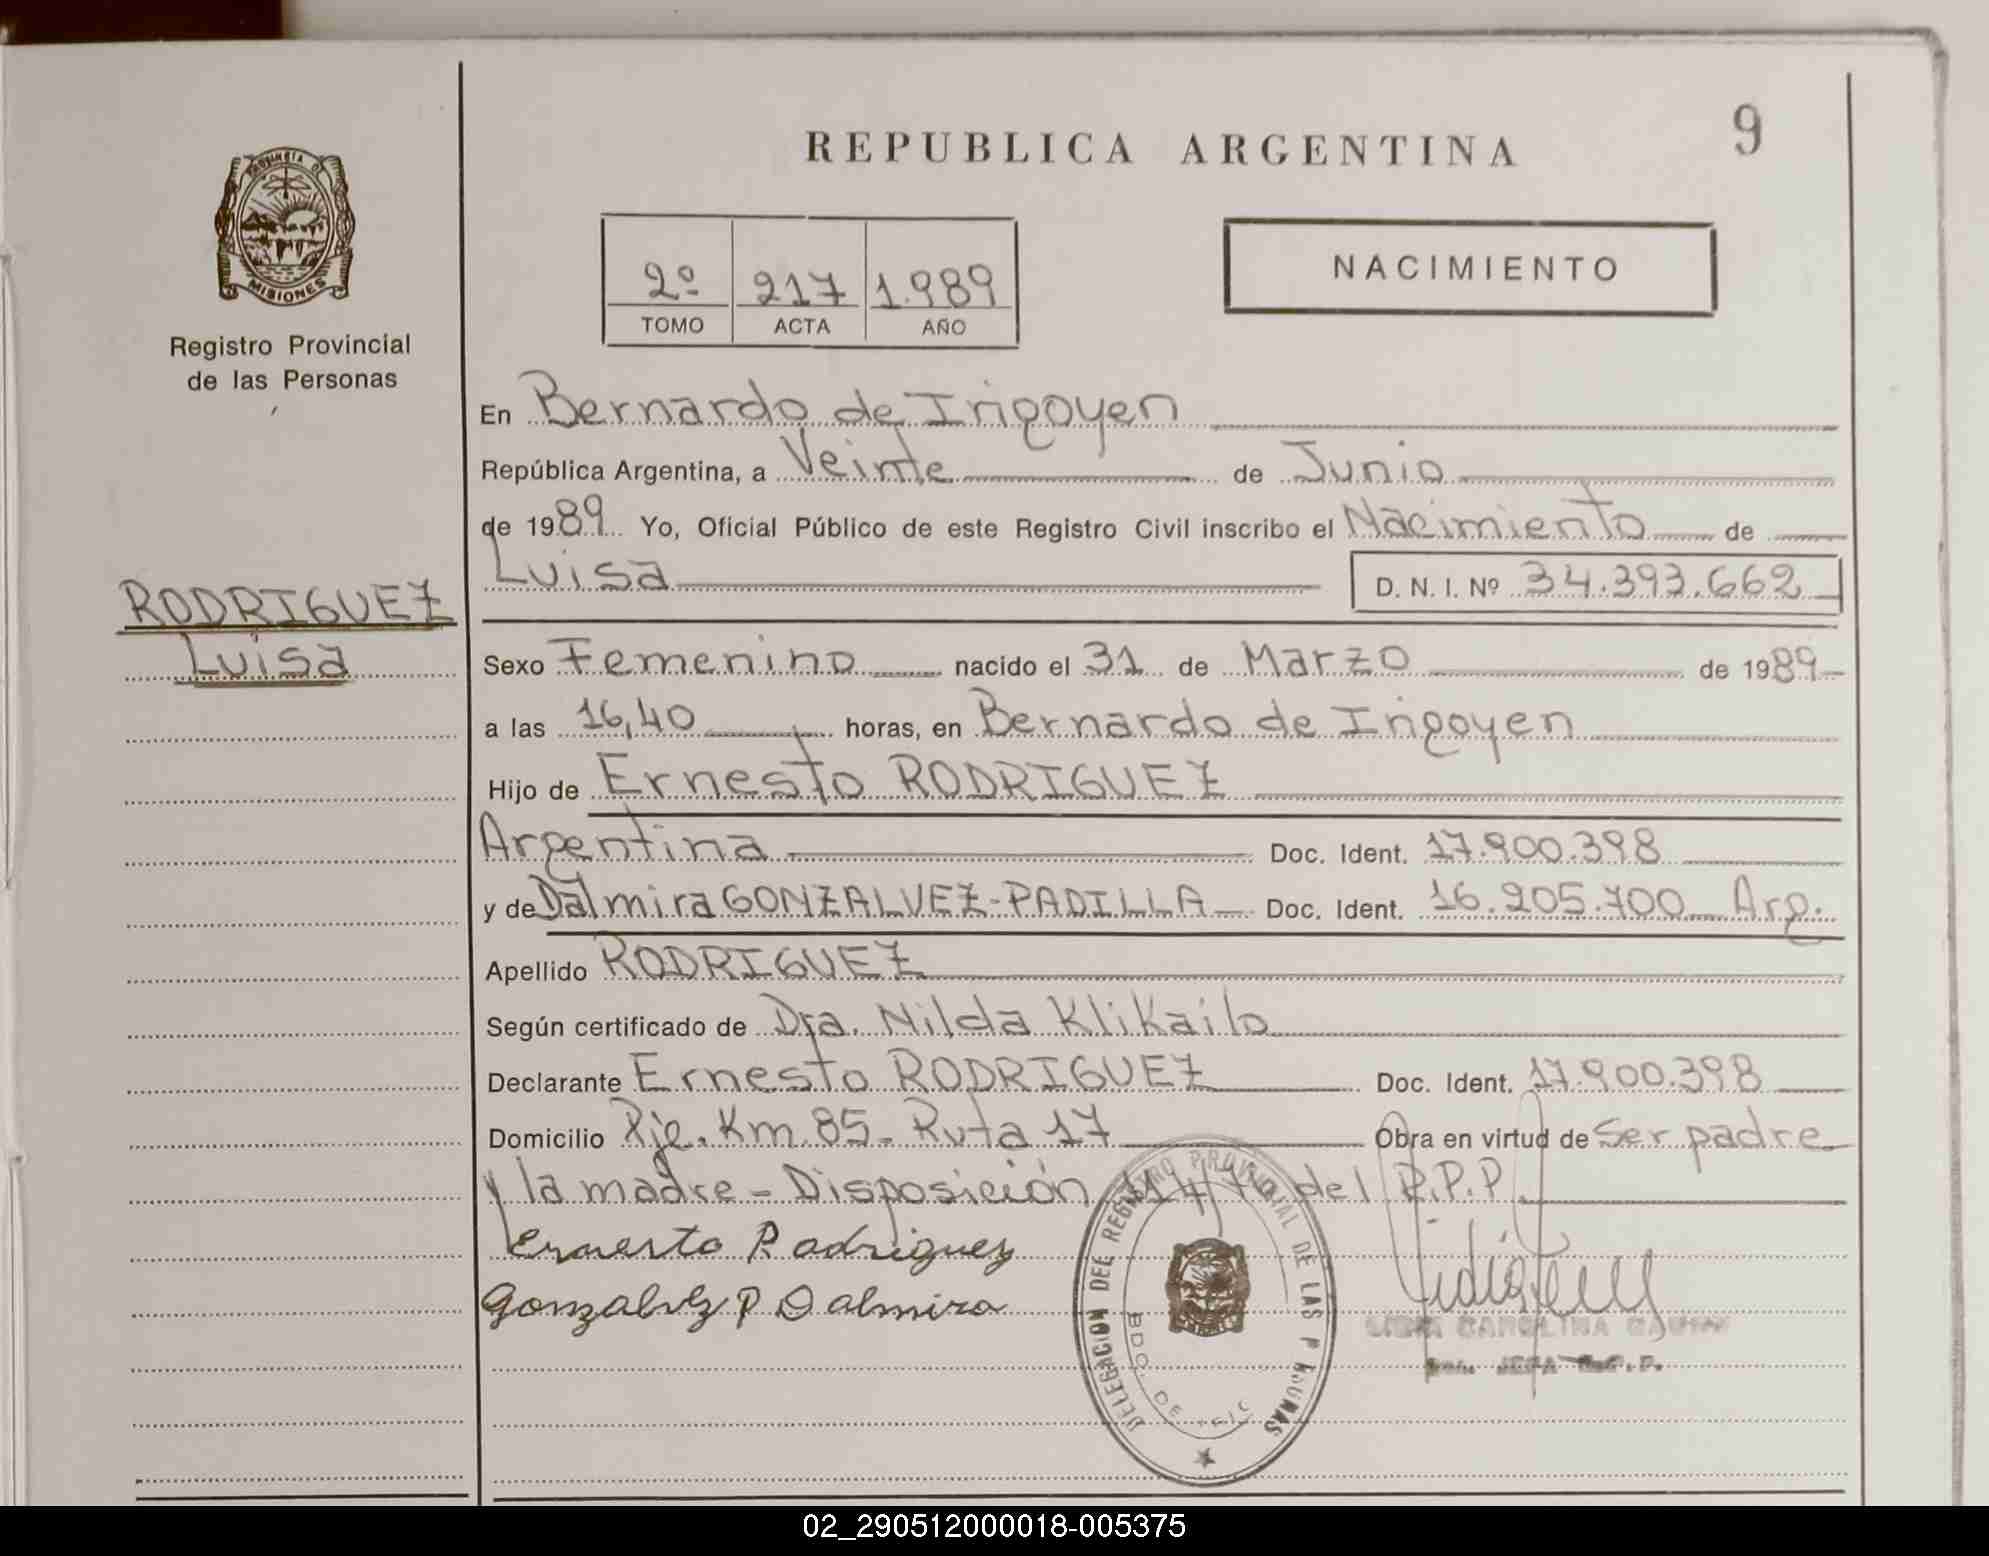 REPUBLICA ARGENTINA
9
PROVINCIA DE
MISIONES
Registro Provincial
de las Personas
2º 217 1.989
TOMO ACTA AÑO
NACIMIENTO
En Bernardo de Irigoyen
República Argentina, a Veinte de Junio
de 1989 Yo, Oficial Público de este Registro Civil inscribo el Nacimiento de
Luisa D. N. I. Nº 34.393.662
RODRIGUEZ
Luisa
Sexo Femenino nacido el 31 de Marzo de 1989
a las 16,40 horas, en Bernardo de Irigoyen
Hijo de Ernesto RODRIGUEZ
Argentina Doc. Ident. 17.900.398
y de Dalmira GONZALVEZ-PADILLA Doc. Ident. 16.205.700 Arg.
Apellido RODRIGUEZ
Según certificado de Dra. Nilda Klikailo
Declarante Ernesto RODRIGUEZ Doc. Ident. 17.900.398
Domicilio Pje. Km. 85- Ruta 17 Obra en virtud de Ser padre
y la madre - Disposición del R.P.P.
Ernesto Rodriguez
Gonzalvez P Dalmira
DELEGACION DEL REGISTRO PROVINCIAL DE LAS PERSONAS
BDO. DE
CAROLINA
JEFA
02_290512000018-005375